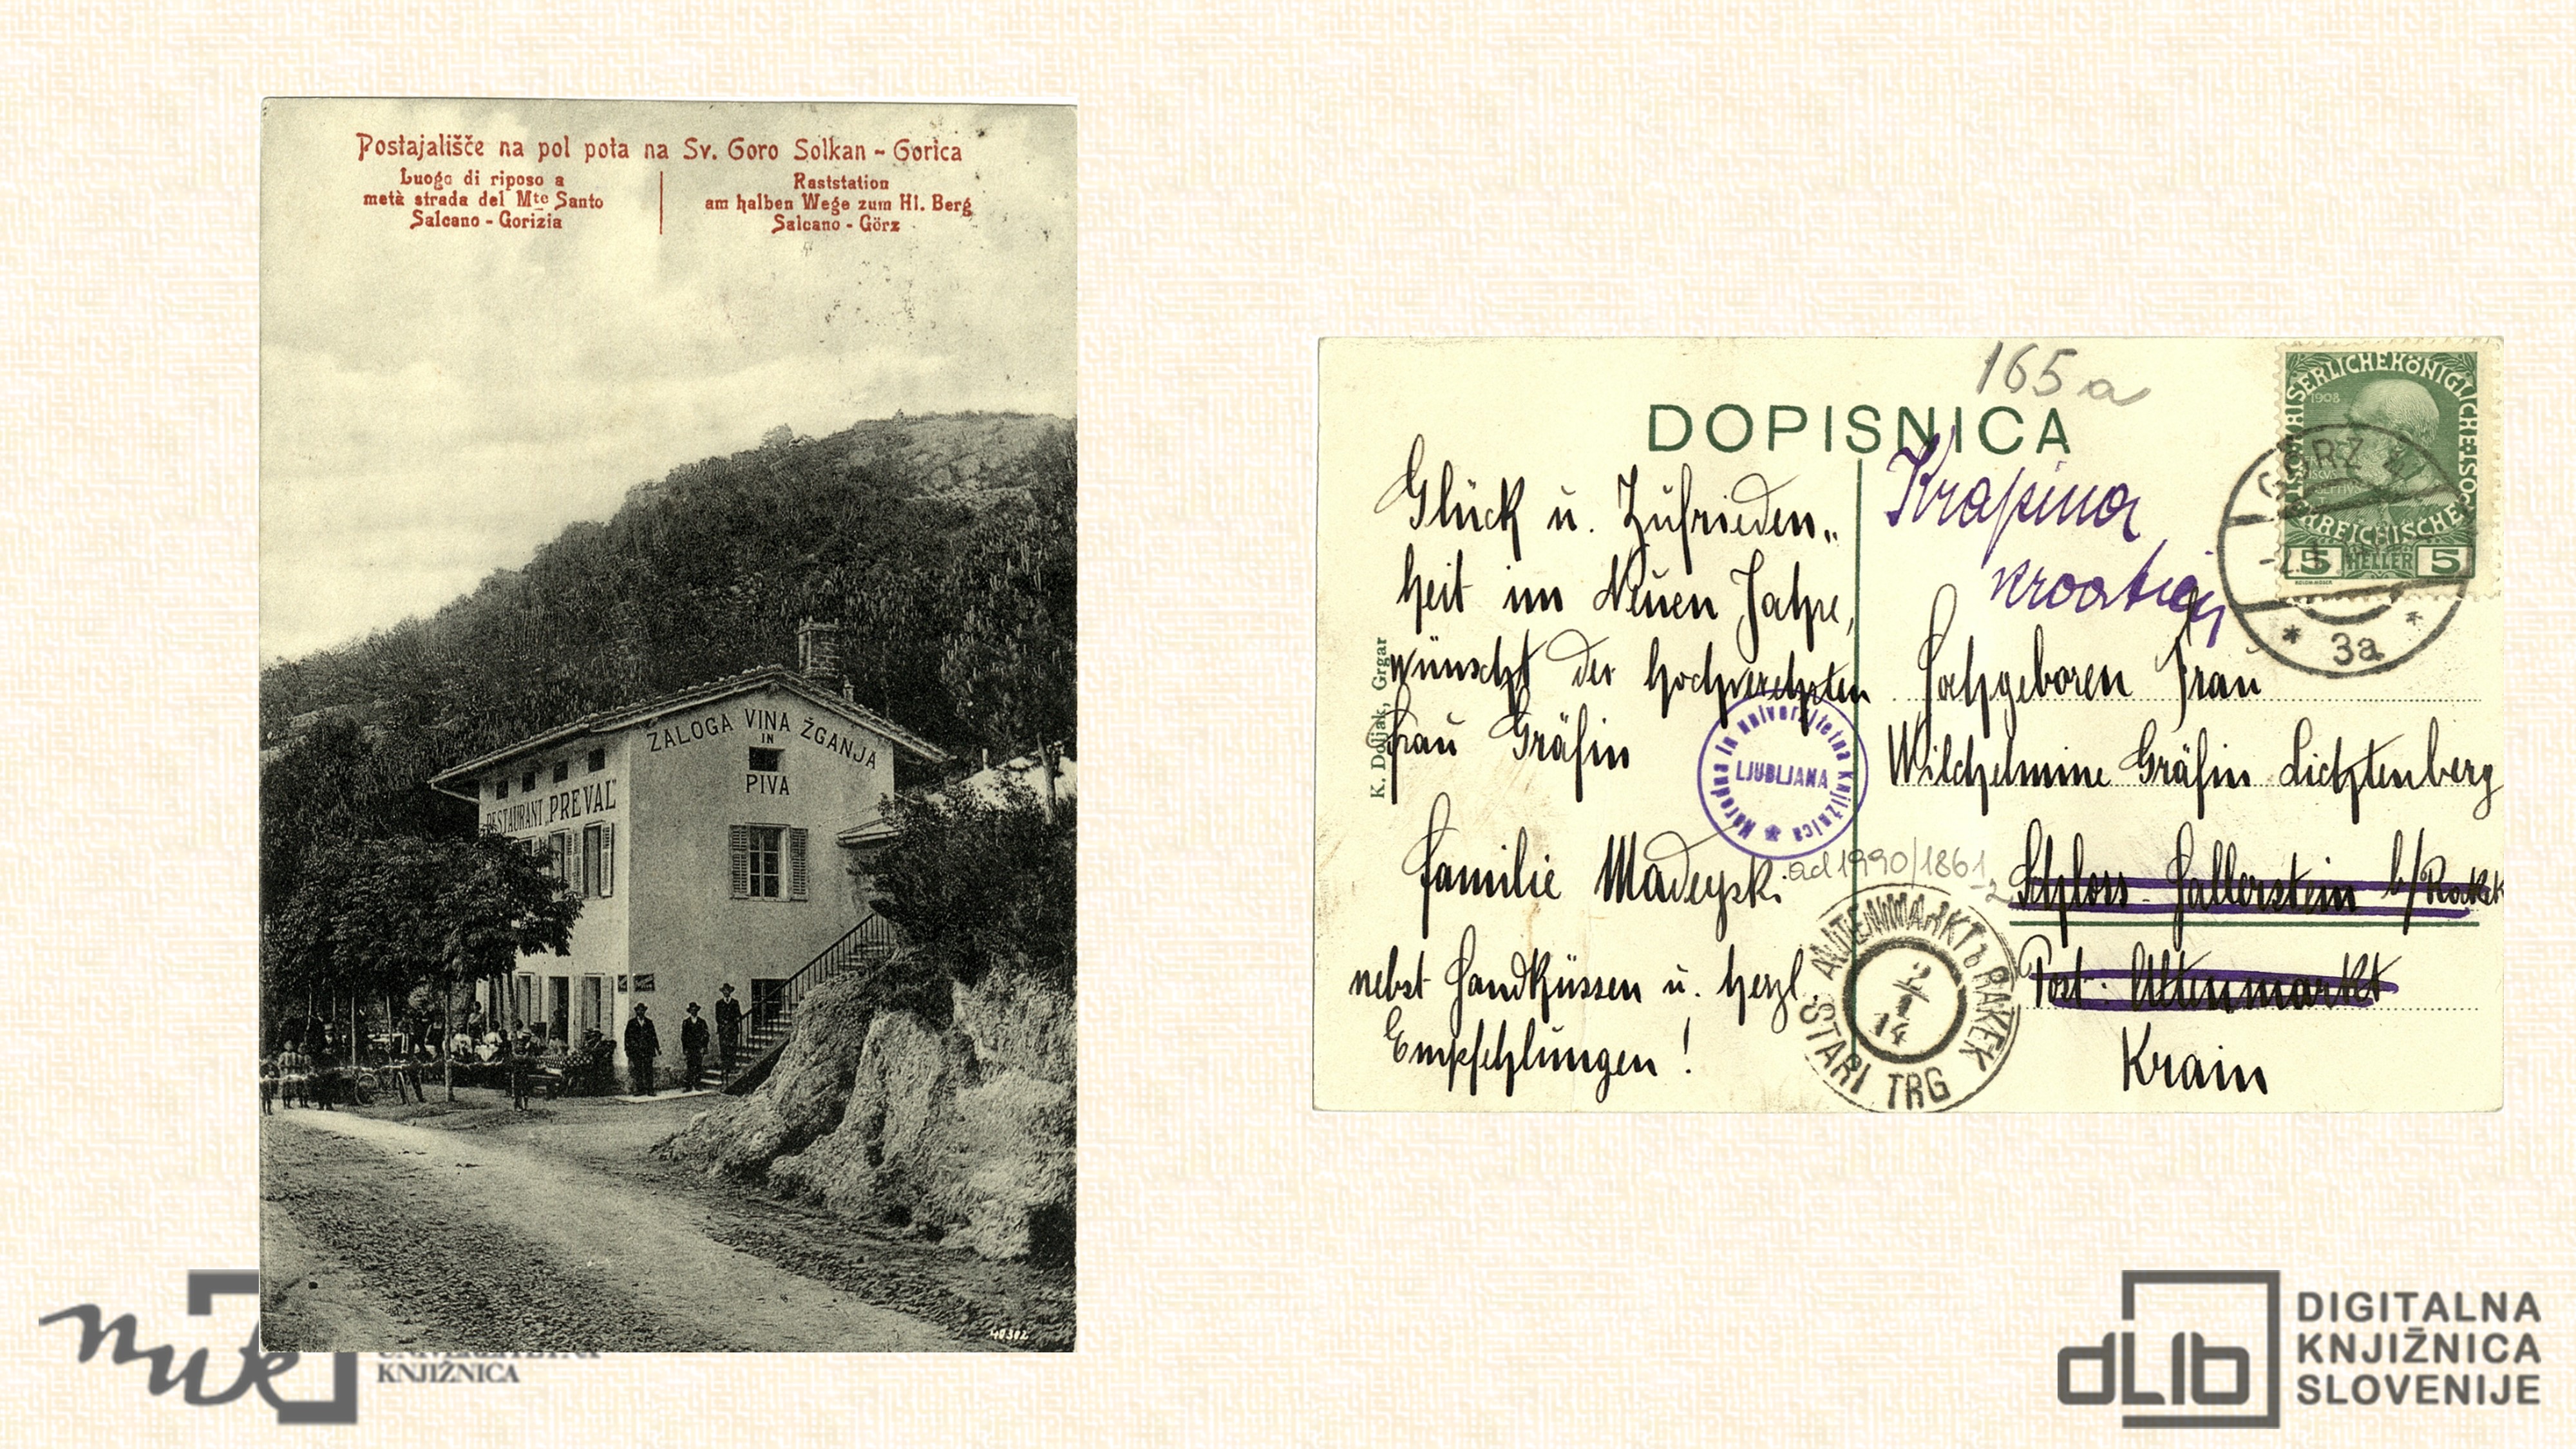 Postajališče na pol pota na Sv. Goro Solkan - Gorica
Luogo di riposo a
metà strada del Mte Santo
Salcano - Gorizia
Raststation
am halben Wege zum Hl. Berg
Salcano - Görz
ZALOGA VINA ŽGANJA
IN
PIVA
RESTAURANT „PREVAL"
40302
165 a
DOPISNICA
Glück u. Zufrieden„
heit im Neuen Jahre,
wünscht der hochverehrten
Frau Gräfin
Familie Madeyski
nebst Handküssen u. herzl.
Empfehlungen!
K. Doljak, Grgar
Narodna in univerzitetna knjižnica
LJUBLJANA
ad 1990/1861
Krapina
Kroatien
Hochgeboren Frau
Wilchelmine Gräfin Lichtenberg
Schloss Hallerstein b/Rakek
Post: Altenmarkt
Krain
KAISERLICHE KÖNIGLICHE ÖSTERREICHISCHE
1908
5 HELLER 5
GÖRZ
3a
ALTENMARKT b RAKEK
2/1
14
STARI TRG
nuk
KNJIŽNICA
dLib
DIGITALNA
KNJIŽNICA
SLOVENIJE